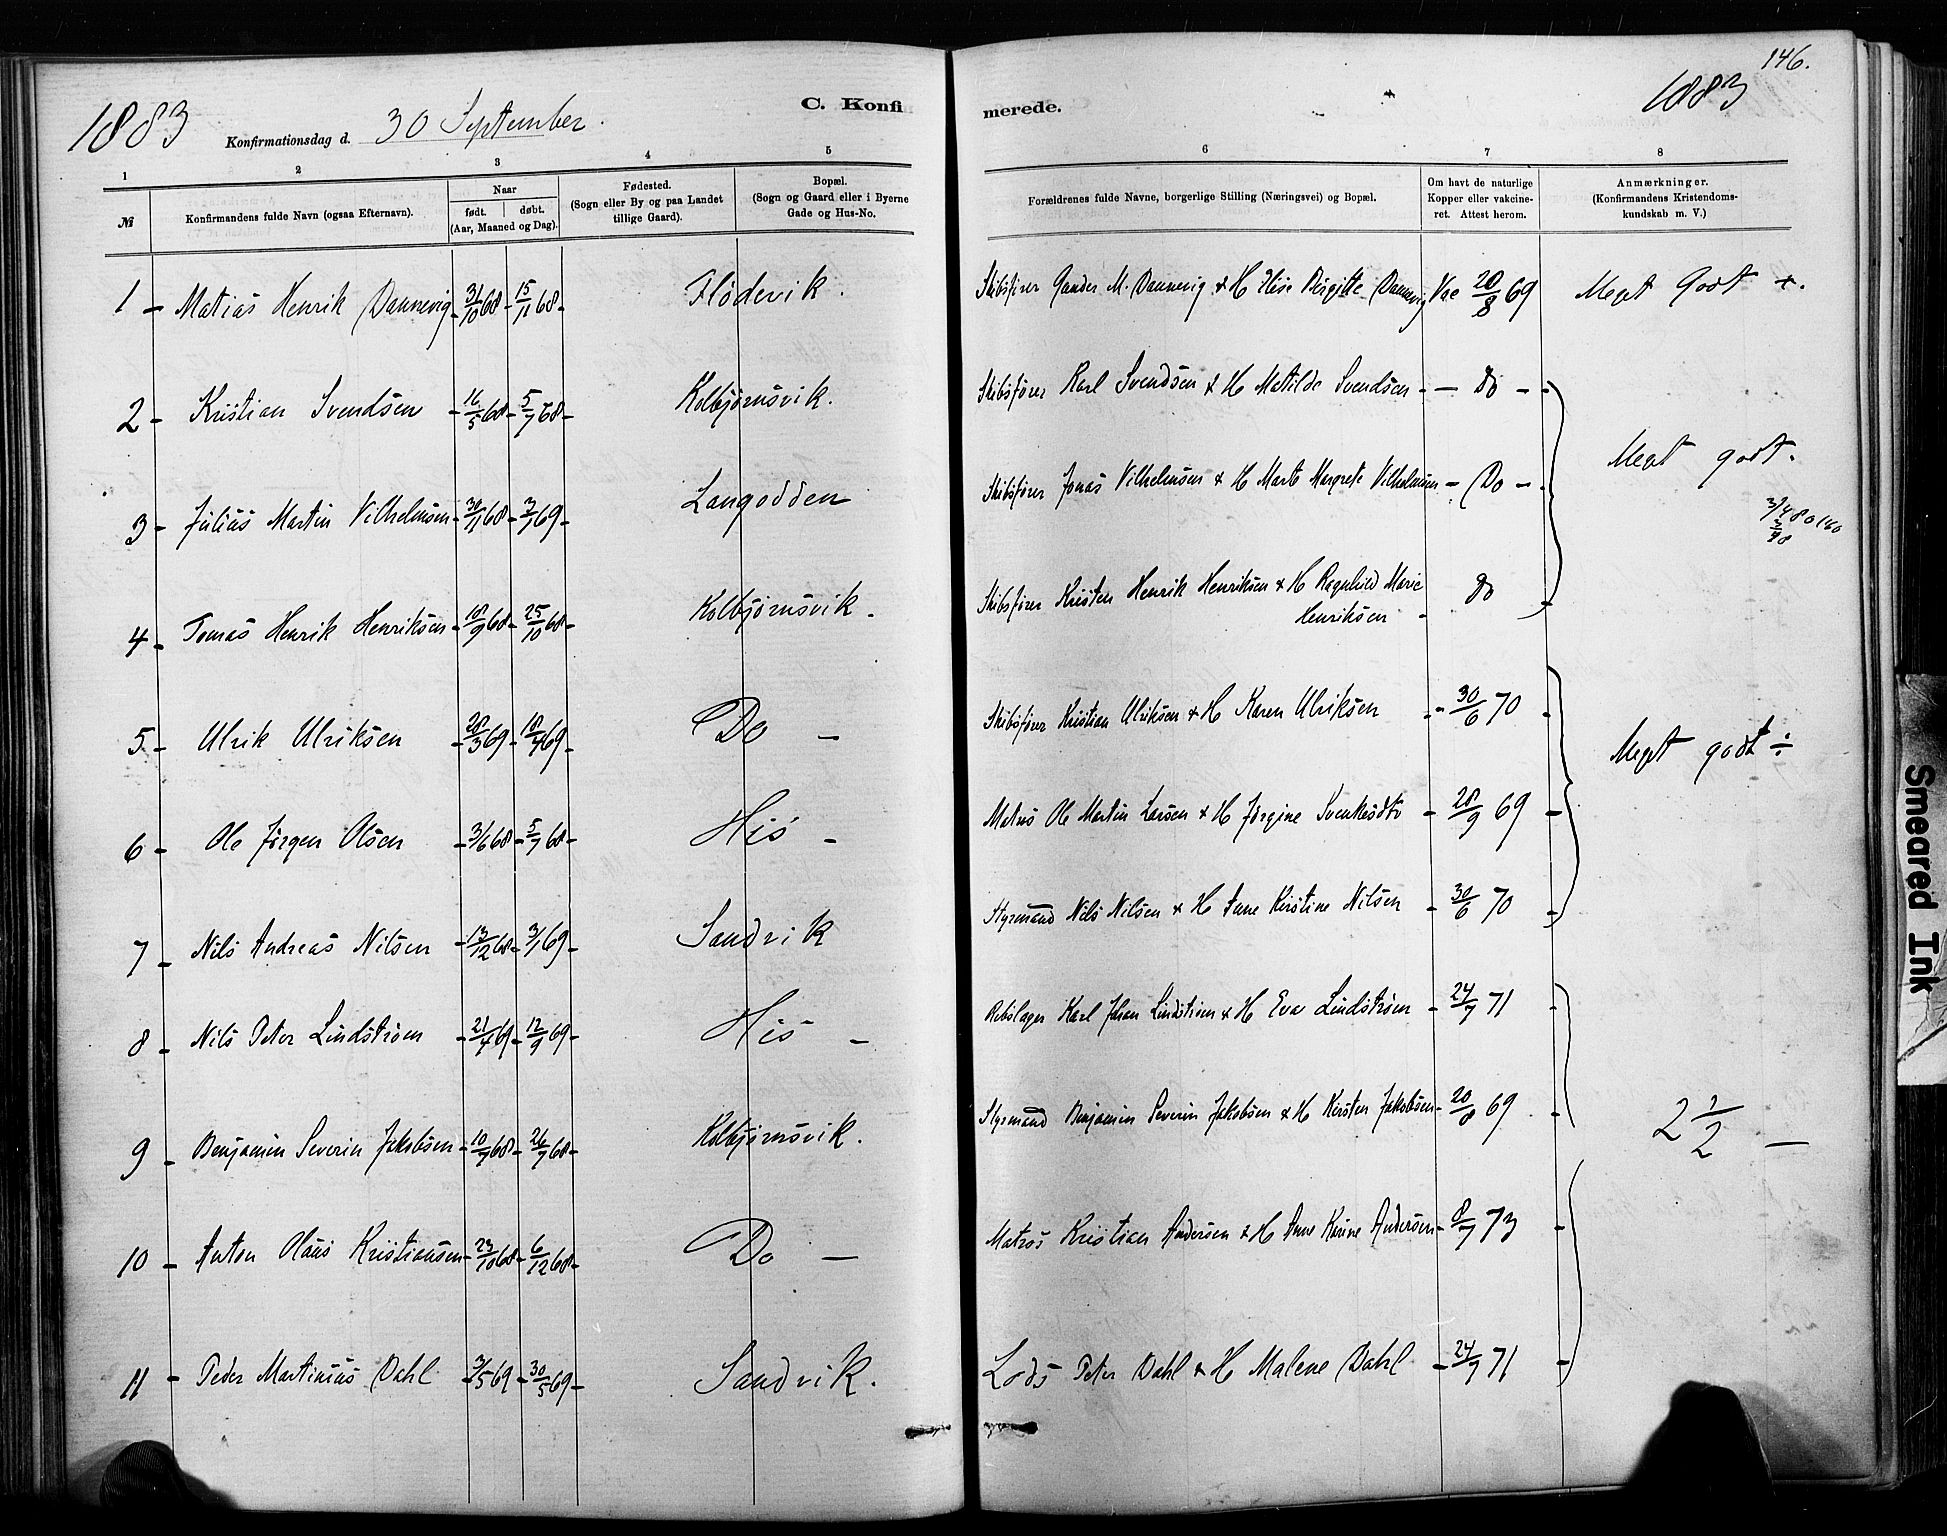 146.
1883
1883
Konfirmationsdag d. 30 September.
C. Konfi
merede.
1 2 3 4 5
6 7 8
№
Konfirmandens fulde Navn (ogsaa Efternavn).
Naar
født. døbt.
(Aar, Maaned og Dag).
Fødested.
(Sogn eller By og paa Landet
tillige Gaard).
Bopæl.
(Sogn og Gaard eller i Byerne
Gade og Hus-No.
Forældrenes fulde Navne, borgerlige Stilling (Næringsvei) og Bopæl.
Om havt de naturlige
Kopper eller vakcine-
ret. Attest herom.
Anmærkninger.
(Konfirmandens Kristendoms-
kundskab m. V.)
1 - Matias Henrik Dannevig - 31/10 68 - 15/11 68 - Flødevik. Skibsfører Gunder M. Dannevig & H Birgitte Dannevig Vac 20/8 69 Meget Godt +.
2 - Kristian Svendsen - 16/5 68 - 5/7 68 - Kolbjørnsvik. Skibsfører Karl Svendsen & H Matilde Svendsen - Do -
Meget godt.
3 - Julius Martin Vilhelmsen - 30/11 68 - 3/1 69 - Langodden Skibsfører Jonas Vilhelmsen & H Marte Margrete Vilhelmsen - Do -
4 - Tomas Henrik Henriksen - 18/9 68 - 25/10 68 - Kolbjørnsvik - Skibsfører Kristen Henrik Henriksen & H Ragnhild Marie Do
Henriksen -
5 - Ulrik Ulriksen - 28/3 69 - 18/4 69 - Do - Skibsfører Kristian Ulriksen & H Karen Ulriksen - 30/6 70
Meget godt ÷
6 - Ole Jørgen Olsen - 3/6 68 - 5/7 68 - His - Matros Ole Martin Larsen & H Jørgine - 28/9 69
7 - Nils Andreas Nilsen - 13/12 68 - 3/1 69 - Sandvik Styrmand Nils Nilsen & H Anne Kirstine Nilsen - 30/6 70
8 - Nils Peter Lindstrøm - 21/7 69 - 12/9 69 - His - Rebslager Karl Johan Lindstrøm & H Eva Lindstrøm - 24/7 71
9 - Benjamin Severin Jakobsen - 10/7 68 - 26/7 68 - Kolbjørnsvik. Styrmand Benjamin Severin Jakobsen & H Kirsten Jakobsen - 20/8 69
2 1/2 -
10 - Anton Olaus Kristiansen - 23/10 68 - 6/12 68 - Do - Matros Kristian Andersen & H Anne Karine Andersen - 8/7 73
11 - Peder Martinius Dahl - 3/5 69 - 30/5 69 - Sandvik. Lods Peter Dahl & H Malene Dahl - 24/7 71
Smeared Ink